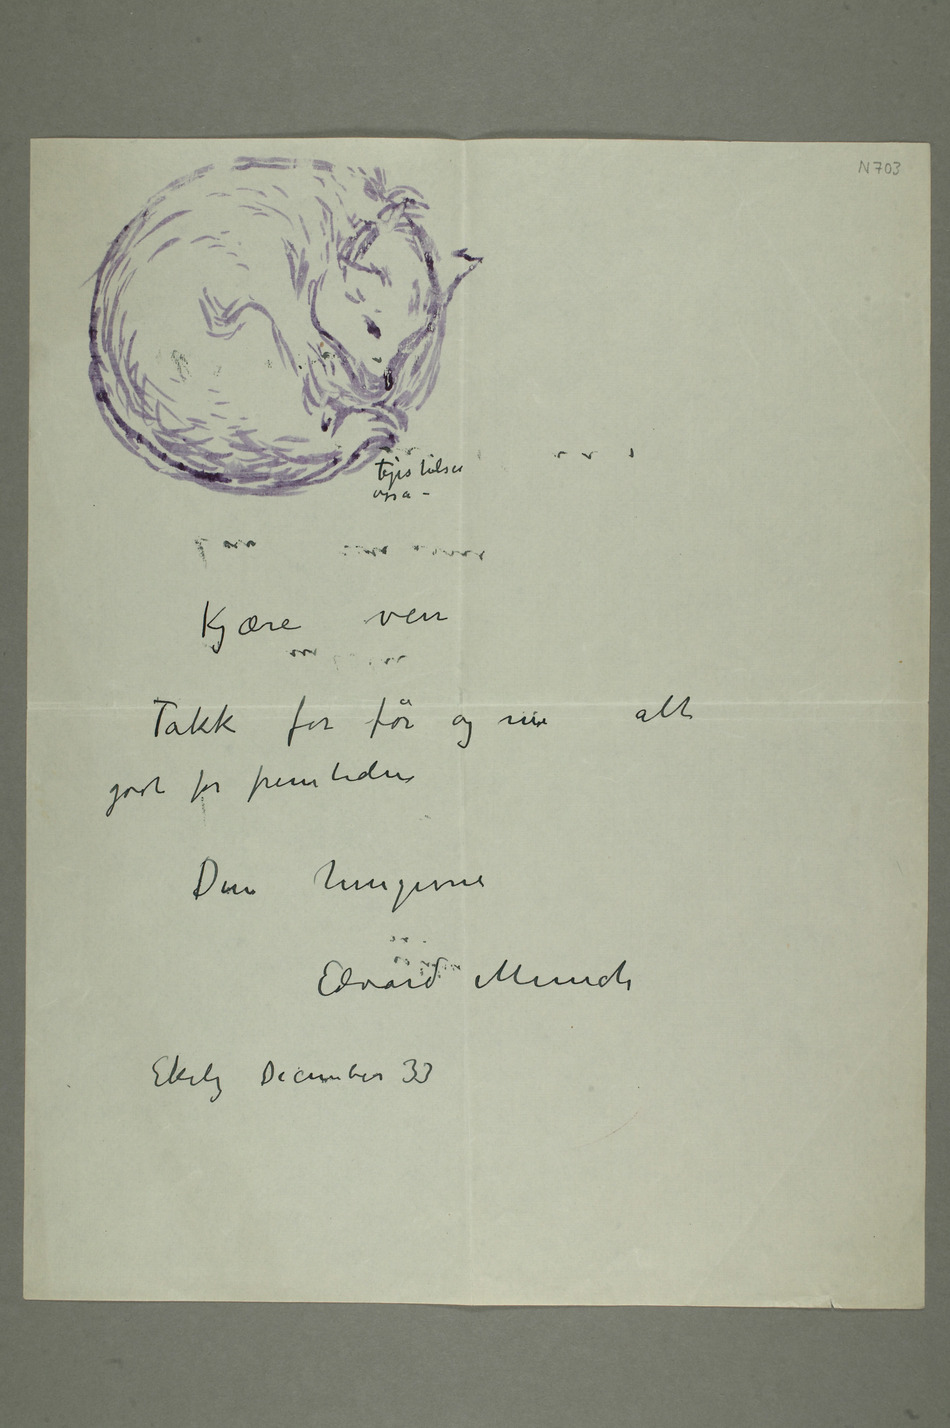 N 703
Kjære ven
Takk for før og nu alt
godt for fremtiden
Din hengivne
Edvard Munch
Ekely December 33